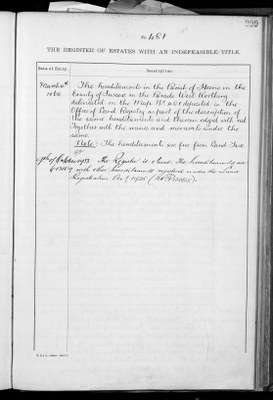 299
No. 451
THE REGISTER OF ESTATES WITH AN INDEFEASIBLE TITLE.
Date of Entry. Description.
March The Hereditaments in the Parish of in the
County of Sussex in the Parade West Worthing
delineated on the Map No 451 deposited in the
Office of Land Registry as part of the description of
the same hereditaments and thereon edged with red
Together with the mines and minerals under the
same.
Note: The hereditaments are free from Land Tax
October 1933 The Register is closed. The hereditaments are
with other hereditaments registered under the Land
Registration Act, 1925